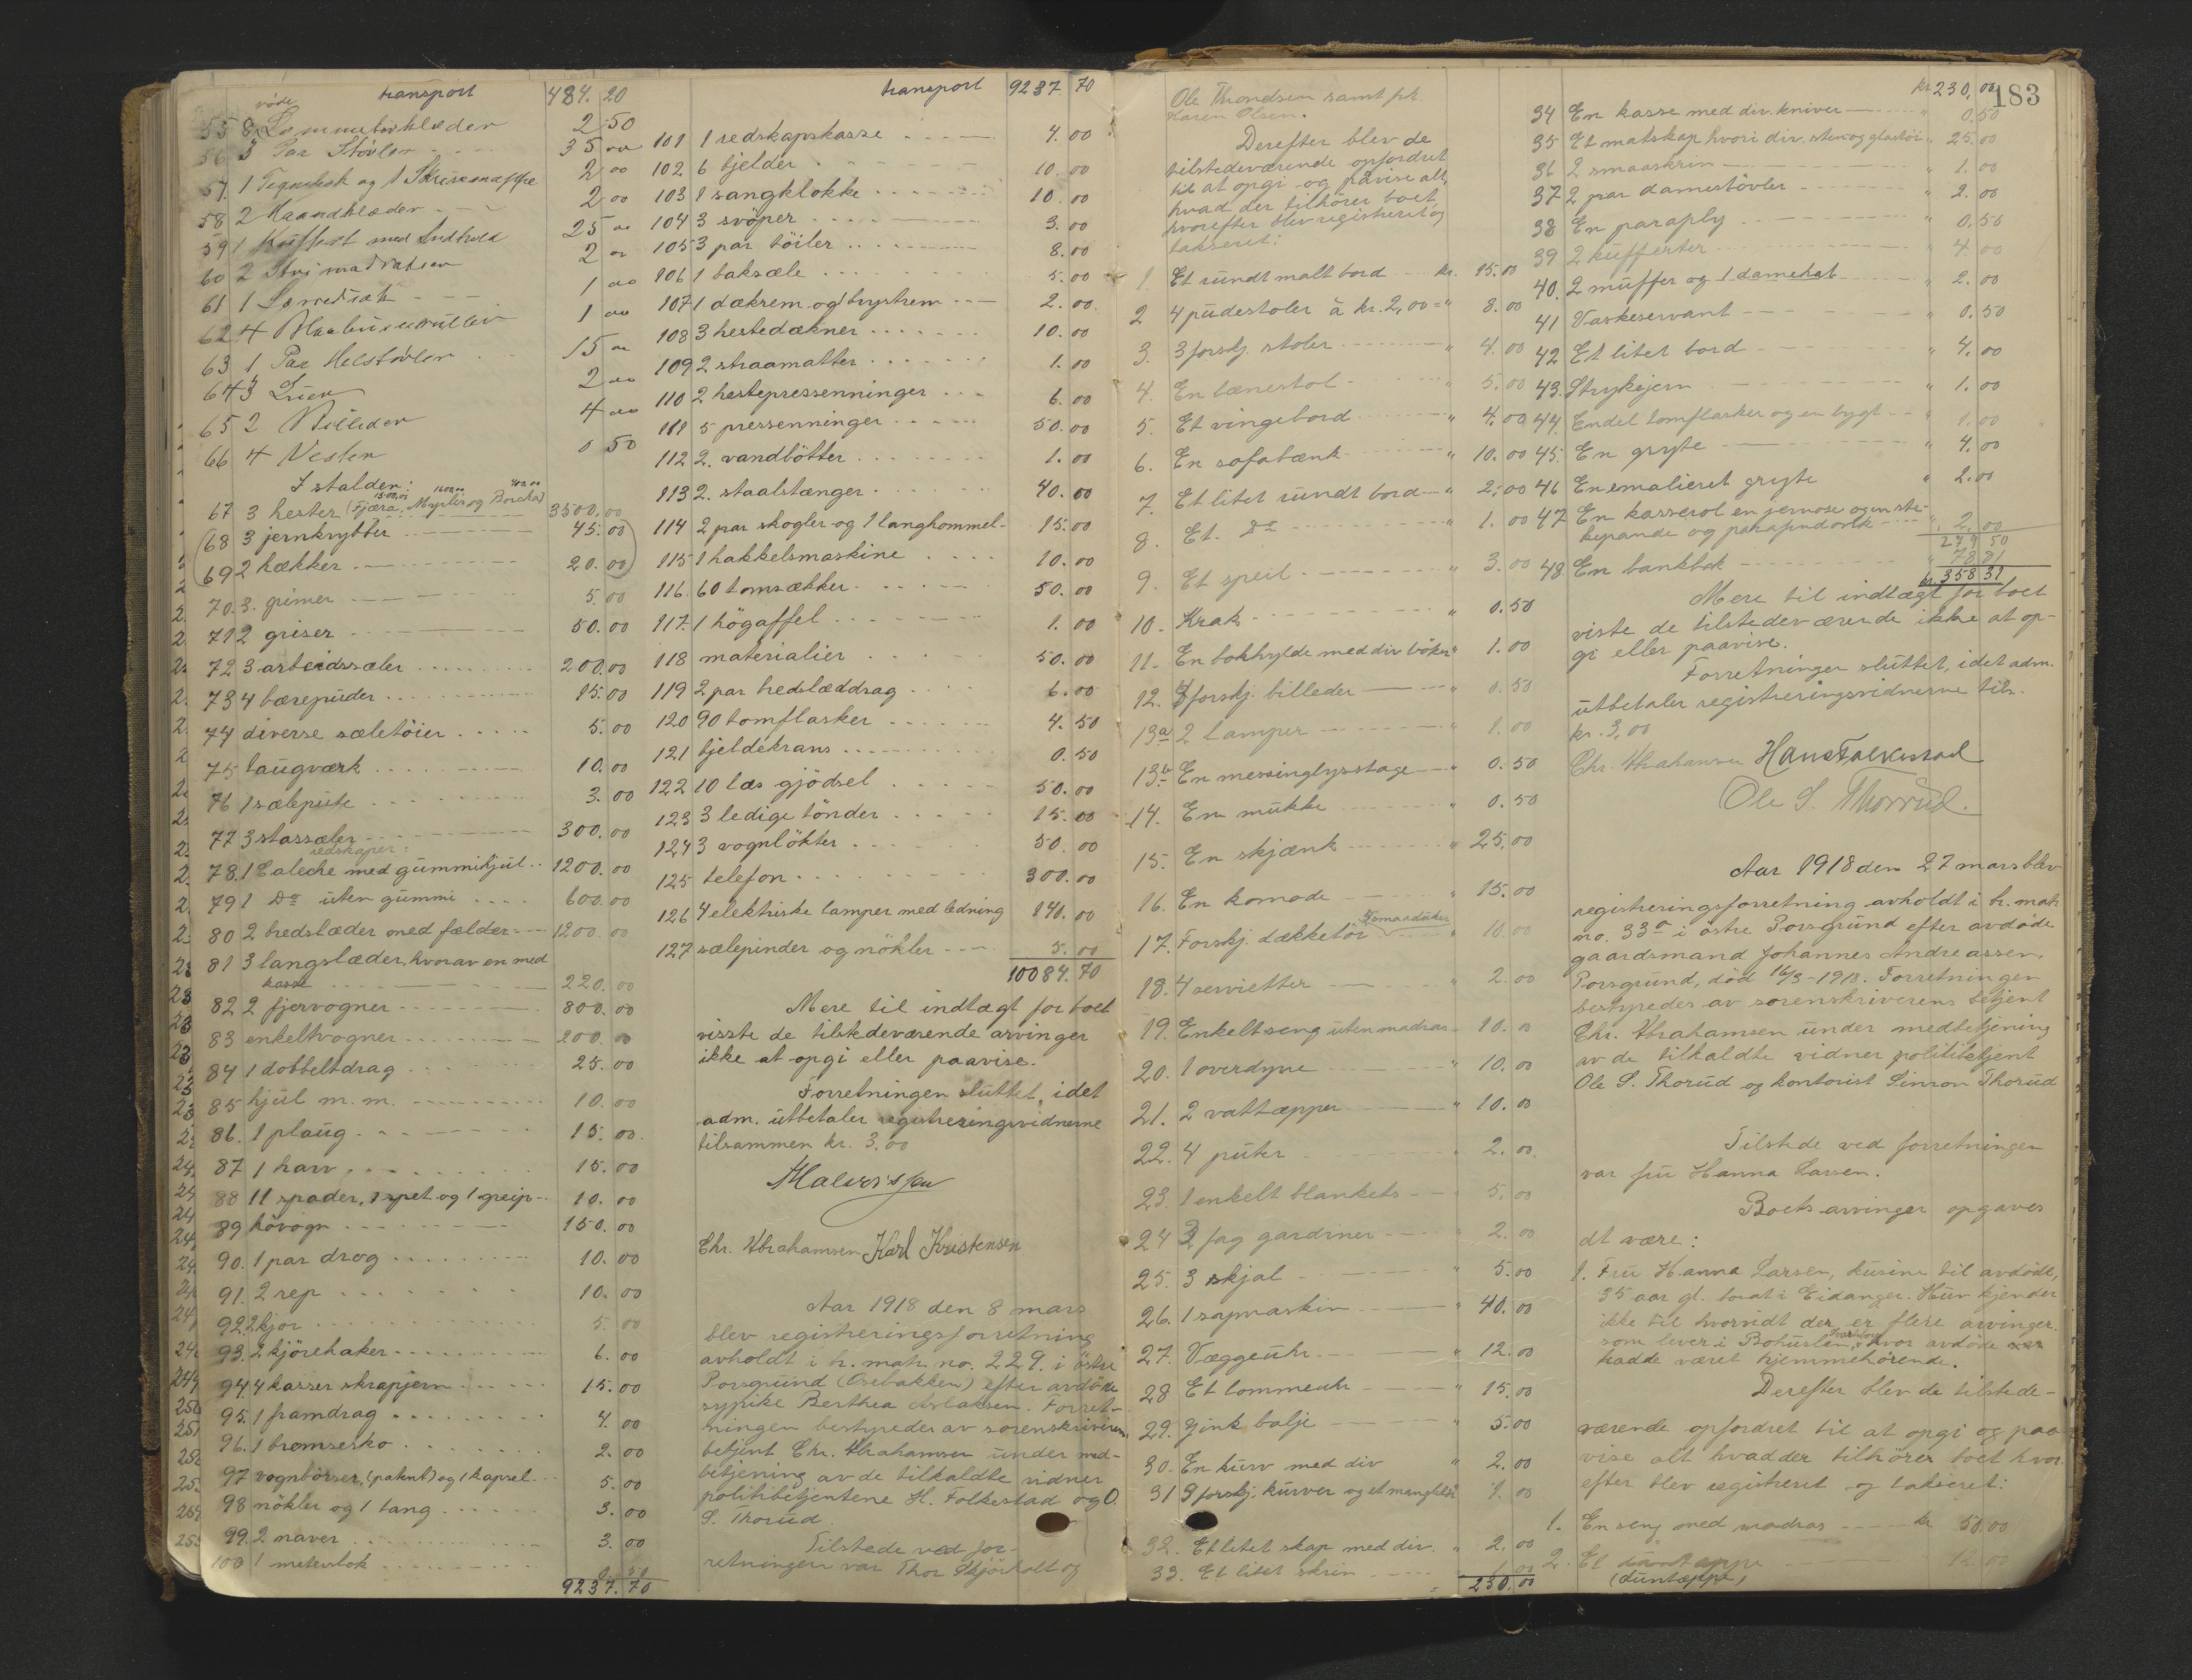 transport 484. 20
røde
55 8 Lommetørklæder 2 50
56 3 Par Støvler 35 00
57. 1 Tegnebok og 1 Skrivemappe 2 00
58 2 Haandklæder 2 00
59 1 Kuffert med Indhold 25 00
60 2 2 00
61 1 1 00
62 4 1 00
63 1 Par Helstøvler 15 00
64 3 Luer 2 00
65 2 4 00
66 4 Vester 0 50
I stalden:
1500,00 1600,00 400,00
67 3 hester (Fjæra, Myrlis og Borcka) 3500.00
68 3 jernkrybber 45.00
69 2 hækker 20.00
70. 3. grimer 5.00
71 2 griser 50.00
72 3 arbeidssæler 200.00
73 4 bærepuder 15.00
74 diverse sæletöier 5.00
75 taugværk 10.00
76 1 sælepute 3.00
77 3 stassæler 300.00
redskaper:
78. 1 Caleche med gummihjul 1200.00
79 1 Do uten gummi 600.00
80 2 bredslæder med fælder 1200.00
81 3 langslæder, hvorav en med
kasse 220.00
82 2 fjervogner 800.00
83 enkeltvogner 200.00
84 1 dobbeltdrag 25.00
85 hjul m. m. 10.00
86. 1 plaug 15.00
87 1 harv 15.00
88 11 spader, 1 spet og 1 greip 10.00
89 hövogn 150.00
90. 1 par drog 10.00
91. 2 rep 10.00
92 2 kjor 5.00
93. 2 kjörehaker 6.00
94 4 kasser skrapjern 15.00
95. 1 framdrag 4.00
96. 1 bremsesko 2.00
97 vognbörser, (patent) og 1 kapsel 5.00
98 nökler og 1 tang 3.00
99. 2 naver 3.00
100 1 meterstok 0.50
9237.70
transport 9237 70
101 1 redskapskasse 4.00
102 6 bjelder 10.00
103 1 sangklokke 10.00
104 3 svöper 3.00
105 3 par töiler 8.00
106 1 baksæle 5.00
107 1 dækrem og 1 brystrem 2.00
108 3 hestedækner 10.00
109 2 straamatter 1.00
110 2 hestepressenninger 6.00
111 5 pressenninger 50.00
112 2. vandbötter 1.00
113 2. staalstænger 40.00
114 2 par skogler og 1 langhommel 15.00
115 1 hakkelsmaskine 10.00
116. 60 tomsækker 50.00
117. 1 högaffel 1.00
118 materialier 50.00
119 2 par bredslæddrag 6.00
120 90 tomflasker 4.50
121 bjeldekrans 0.50
122 10 læs gjödsel 50.00
123 3 ledige tönder 15.00
124 3 vognlökter 50.00
125 telefon 300.00
126 4 elektriske lamper med ledning 140.00
127 sælepinder og nökler 5.00
10084.70
Mere til indtægt for boet
visste de tilstedeværende arvinger
ikke at opgi eller paavise.
Forretningen sluttet, idet
adm. utbetaler registreringsvidnerne
tilsammen kr. 3.00
Chr. Abrahamsen Karl Kristensen
Aar 1918 den 8 mars
blev registreringsforretning
avholdt i h. matr. no. 229. i östre
Porsgrund (Osebakken) efter avdöde
sypike Berthea Aslaksen. Forret-
ningen bestyredes av sorenskriverens
betjent Chr. Abrahamsen under med-
betjening av de tilkaldte vidner
politibetjentene H. Folkestad og O.
S. Thorud.
Tilstede ved for-
retningen var Thor Skjörholt og
Ole Thondsen samt frk.
Karen Olsen.
Derefter blev de
tilstedeværende opfordret
til at opgi og påvise alt,
hvad der tilhörer boet,
hvorefter blev registreret og
takseret:
1. Et rundt malt bord kr. 15.00
2 4 pudestoler à kr. 2,00 = " 8.00
3. 3 forskj. stoler " 4.00
4. En lænestol " 5.00
5. Et vingebord " 4.00
6. En sofabænk " 10.00
7. Et litet rundt bord " 2.00
8. Et. Do " 1.00
9. Et speil " 3.00
10. Krak " 0.50
11. En bokhylde med div böker " 1.00
12. 4 forskj. billeder " 0.50
13a 2 lamper " 1.00
13b En messinglysstage " 0.50
14. En mukke " 0.50
15. En skjænk " 25.00
16. En komode " 15.00
17. Forskj. dækketöi 10.00
18. 4 servietter " 2.00
19. Enkeltseng uten madras 10.00
20. 1 overdyne " 10.00
21. 2 vattæpper " 10.00
22. 4 puter " 2.00
23. 1 enkelt blankets " 5.00
24 2 fag gardiner " 2.00
25. 3 skjal " 5.00
26. 1 symaskin " 40.00
27. Væggeuhr " 12.00
28 Et lommeuhr " 15.00
29. Zink balje " 5.00
30. En kurv med div " 2.00
31 9 forskj. kurver og et mangletræ 1.00
32. Et litet skap med div. " 2.00
33. Et litet skrin 1.00
230.00
183
kr 230,00
34 En kasse med div. kniver " 0.50
35 Et matskap hvori div. sten og glastöi " 25.00
36 2 smaaskrin " 1.00
37 2 par damestövler " 2.00
38 En paraply " 0.50
39 2 kufferter " 4.00
40. 2 muffer og 1 damehat " 2.00
41 Vaskeservant " 0.50
42 Et litet bord " 4.00
43. Strykejern " 1.00
44. Endel tomflasker og en lygt " 1.00
45. En gryte " 4.00
46 En emalieret gryte " 2.00
47 En kasserol en jernose og en ste-
kepande og parafindunk " 2.00
279 50
48. En bankbok " 78 81
kr. 358 31
Mere til indtægt for boet
viste de tilstedeværende ikke at op-
gi eller paavise.
Forretningen sluttet, idet adm.
utbetaler registreringsvidnerne tils.
kr. 3.00
Chr. Abrahamsen Hans Folkestad
Ole S. Thorrud.
Aar 1918 den 27 mars blev
registreringsforretning avholdt i h. matr.
no. 33a i östre Porsgrund efter avdöde
gaardsmand Johannes Andreassen,
Porsgrund, död 16/3-1918. Forretningen
bestyredes av sorenskriverens betjent
Chr. Abrahamsen under medbetjening
av de tilkaldte vidner politibetjent
Ole S. Thorud og kontorist Simon Thorud
Tilstede ved forretningen
var fru Hanna Larsen.
Boets arvinger opgaves
at være:
1. Fru Hanna Larsen, kusine til avdöde,
35 aar gl. bosat i Eidanger. Hun kjender
ikke til hvorvidt der er flere arvinger.
som lever i Bohuslen, hvor avdöde
hadde været hjemmehörende.
Derefter blev de tilstede-
værende opfordret til at opgi og paa
vise alt hvad der tilhörer boet hvor
efter blev registreret og takseret:
1. En seng med madras kr 50.00
2. Et 12.00
(duntæppe)